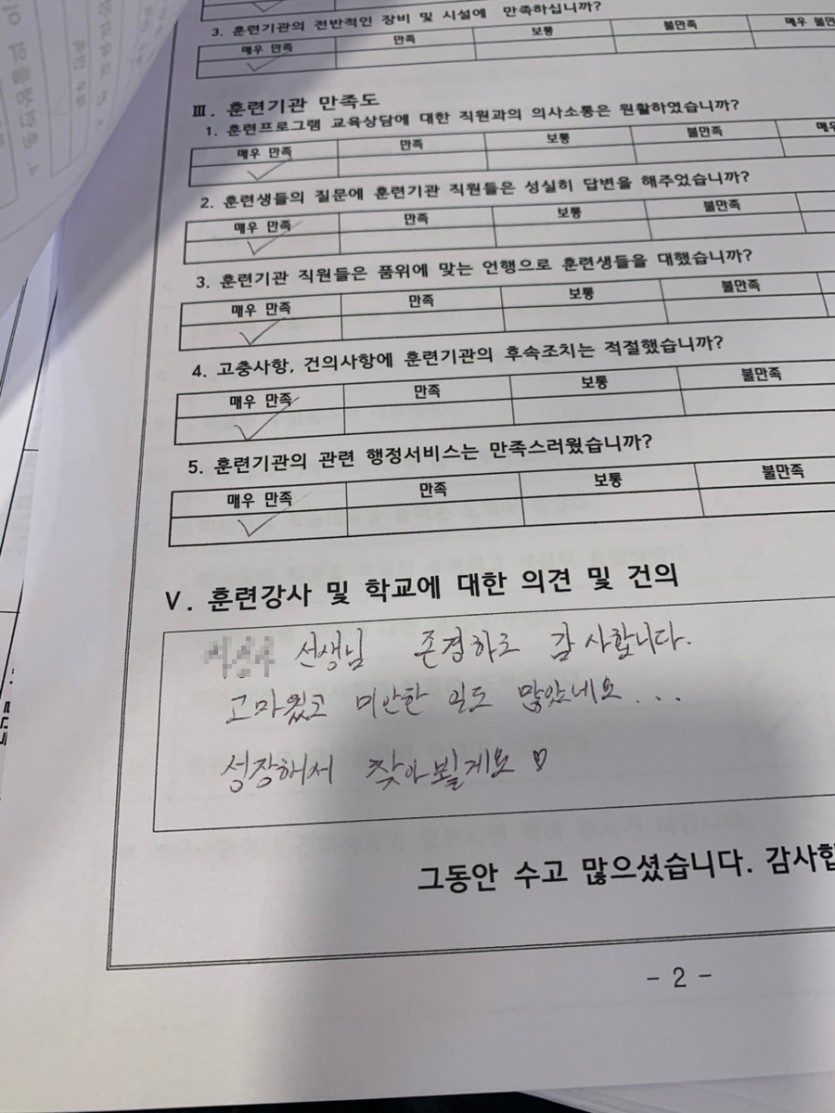 3. 훈련기관의 전반적인 장비 및 시설에 만족하십니까?
매우 만족 만족 보통 불만족 매우 불만
Ⅲ. 훈련기관 만족도
1. 훈련프로그램 교육상담에 대한 직원과의 의사소통은 원활하였습니까?
매우 만족 만족 보통 불만족 매우
2. 훈련생들의 질문에 훈련기관 직원들은 성실히 답변을 해주었습니까?
매우 만족 만족 보통 불만족
3. 훈련기관 직원들은 품위에 맞는 언행으로 훈련생들을 대했습니까?
매우 만족 만족 보통 불만족
4. 고충사항, 건의사항에 훈련기관의 후속조치는 적절했습니까?
매우 만족 만족 보통 불만족
5. 훈련기관의 관련 행정서비스는 만족스러웠습니까?
매우 만족 만족 보통 불만족
Ⅴ. 훈련강사 및 학교에 대한 의견 및 건의
선생님 존경하고 감사합니다.
고마웠고 미안한 일도 많았네요...
성장해서 찾아뵐게요♡
그동안 수고 많으셨습니다. 감사합
- 2 -